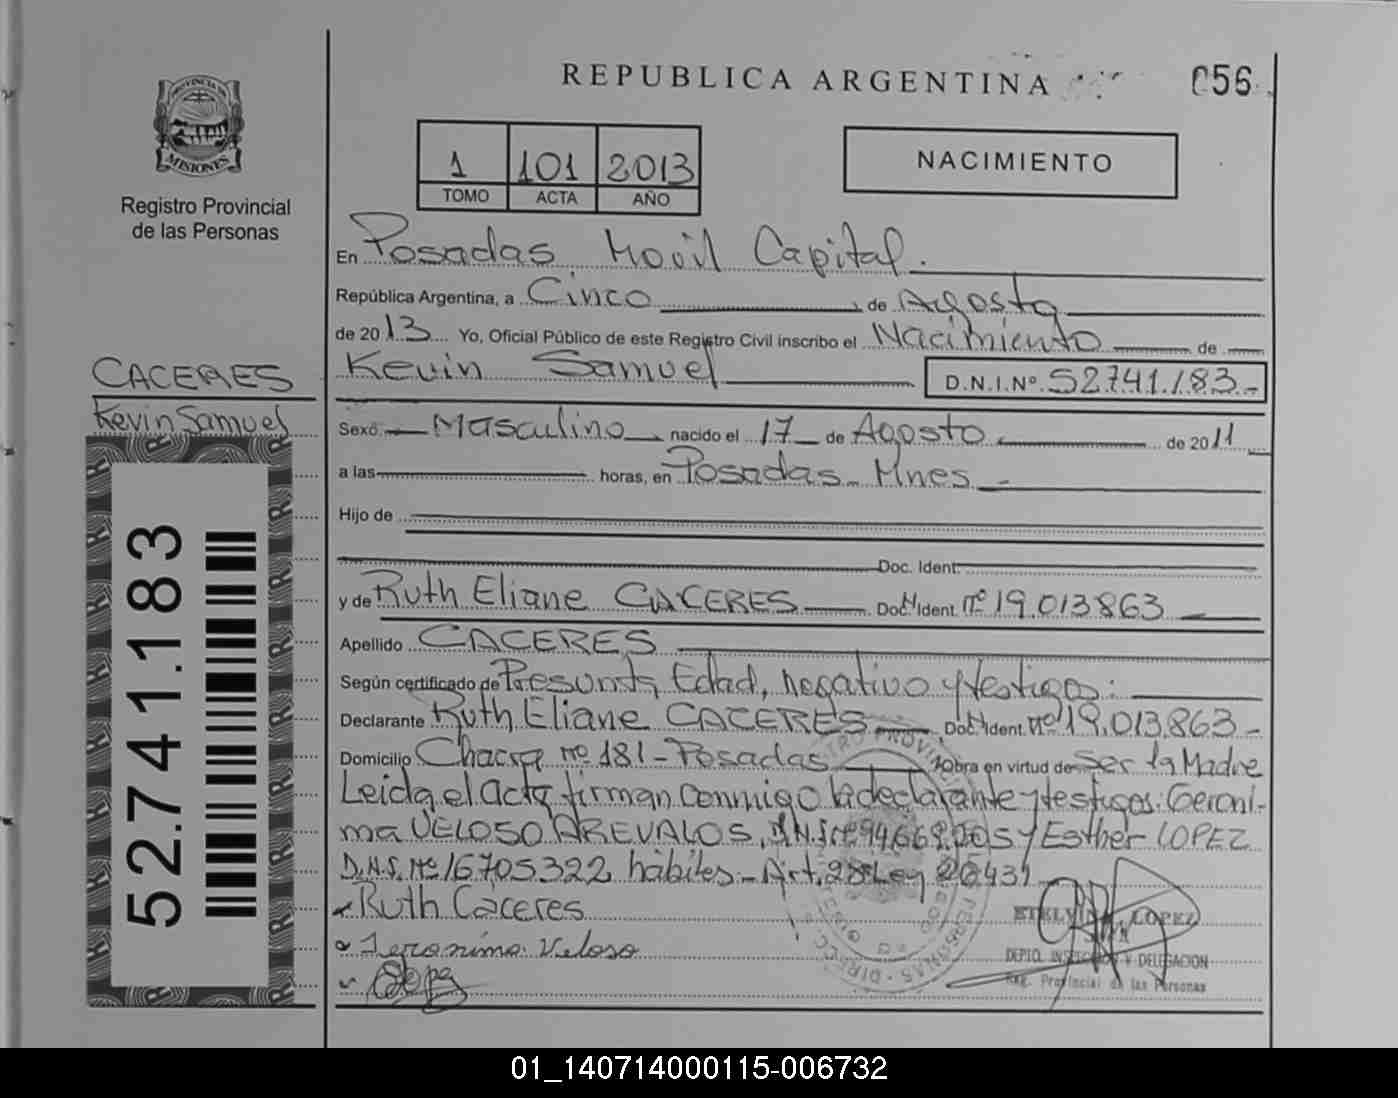 REPUBLICA ARGENTINA
056
PROVINCIA DE
MISIONES
Registro Provincial
de las Personas
1 101 2013
TOMO ACTA AÑO
NACIMIENTO
En Posadas Movil Capital.
República Argentina, a Cinco de Agosto
de 2013 Yo, Oficial Público de este Registro Civil inscribo el Nacimiento de
Kevin Samuel D.N.I.Nº. 52.741.183.-
CACERES
Kevin Samuel
52.741.183
Sexo Masculino nacido el 17 de Agosto de 2011
a las horas, en Posadas Mnes -
Hijo de
Doc. Ident.
y de Ruth Eliane CACERES Doc. Ident. nº 19.013863
Apellido CACERES
Según certificado de Presunta Edad, negativo y testigos:
Declarante Ruth Eliane CACERES Doc. Ident. nº 19.013.863-
Domicilio Chacra nº 181-Posadas Obra en virtud de Ser la Madre
Leida el Acta firman conmigo la declarante y testigos: Geroni-
ma VELOSO AREVALOS, D.N.I. nº 94.668. y Esther LOPEZ
D.N.I. Nº 16705322 hàbiles - Art. 28 Ley 26431
Ruth Cáceres
Jeronima Veloso
ETELVINA LOPEZ
DEPTO. INSPECCION Y DELEGACION
Reg. Provincial de las Personas
01_140714000115-006732